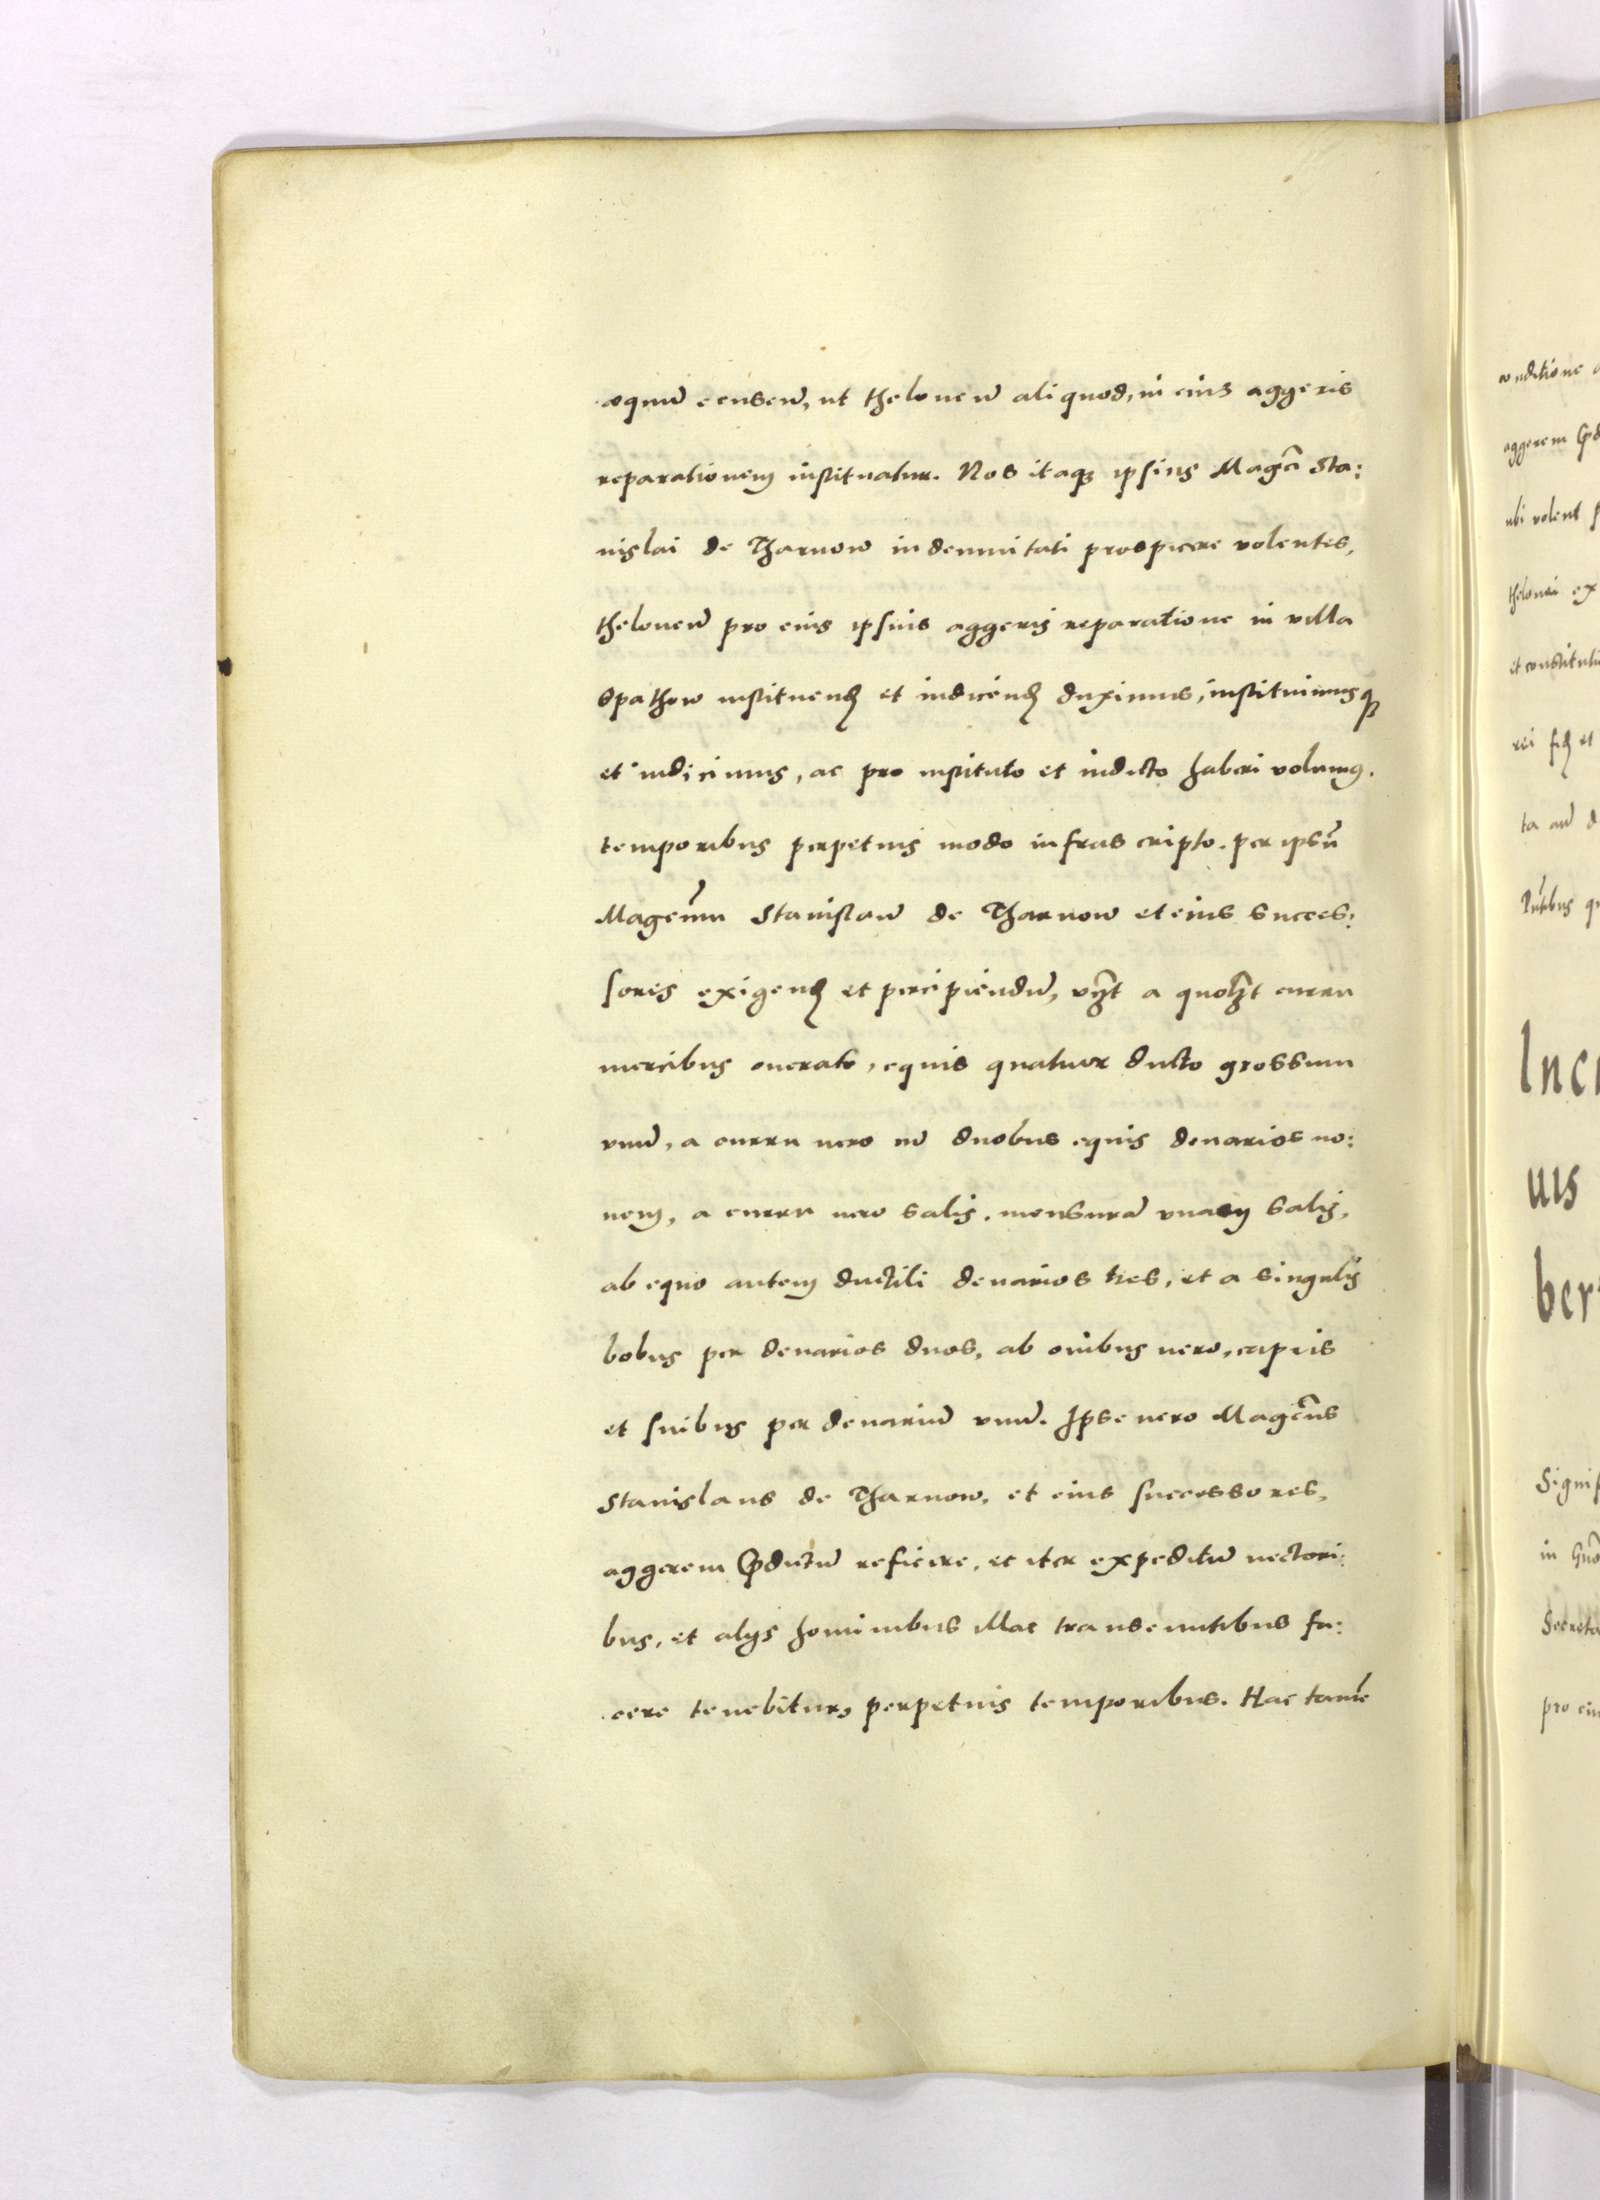 æquũ censeũ, ut theloneũ aliquod, in eius aggeris
reparationem instituatur. Nos itaqꝫ ipsius Magci Sta:
nislai de Tharnow indemnitati prospicere volentes,
theloneũ pro eius ipsius aggeris reparatione in villa
Spathow instituendꝫ et indicendꝫ duximus, instituimusqꝫ
et indicimus, ac pro instituto et indicto haberi volumus.
temporibus perpetuis modo infrascripto. per ipsũ
Magcum Stanislaũ de Tharnow et eius succes:
sores exigendꝫ et percipiendũ, vzt a quolꝫt curru
mercibus onerato, equis quatuor ducto grossum
vnũ, a curru vero cũ duobus equis denarios no:
nem, a curru vero salis. mensurã vnam salis,
ab equo autem ductili denarios tres, et a singulis
bobus per denarios duos, ab ouibus vero, capris
et suibus per denariũ vnũ. Ipse vero Magcus
Stanislaus de Tharnow, et eius successores,
aggerem p̃dictũ reficere, et iter expeditũ vectori:
bus, et alijs hominibus illac transeuntibus fa:
cere tenebitur, perpetuis temporibus. Hac tamẽ
conditione
aggerem
ubi volent
thelonei ex
et constitutũ
rei
ta aũ
Inci
uis
ber
Signif
in
Secreta
pro eiu